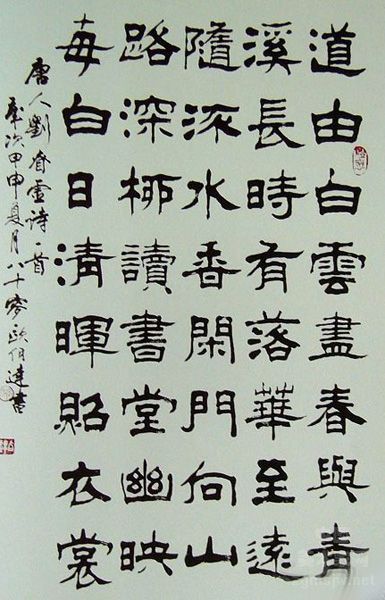 道由白雲盡春與青
溪長時有落華至遠
隨流水香閑門向山
路深柳讀書堂幽映
每白日清暉照衣裳
唐人劉眘虛詩一首
歲次甲申夏月八十零欧伯達書